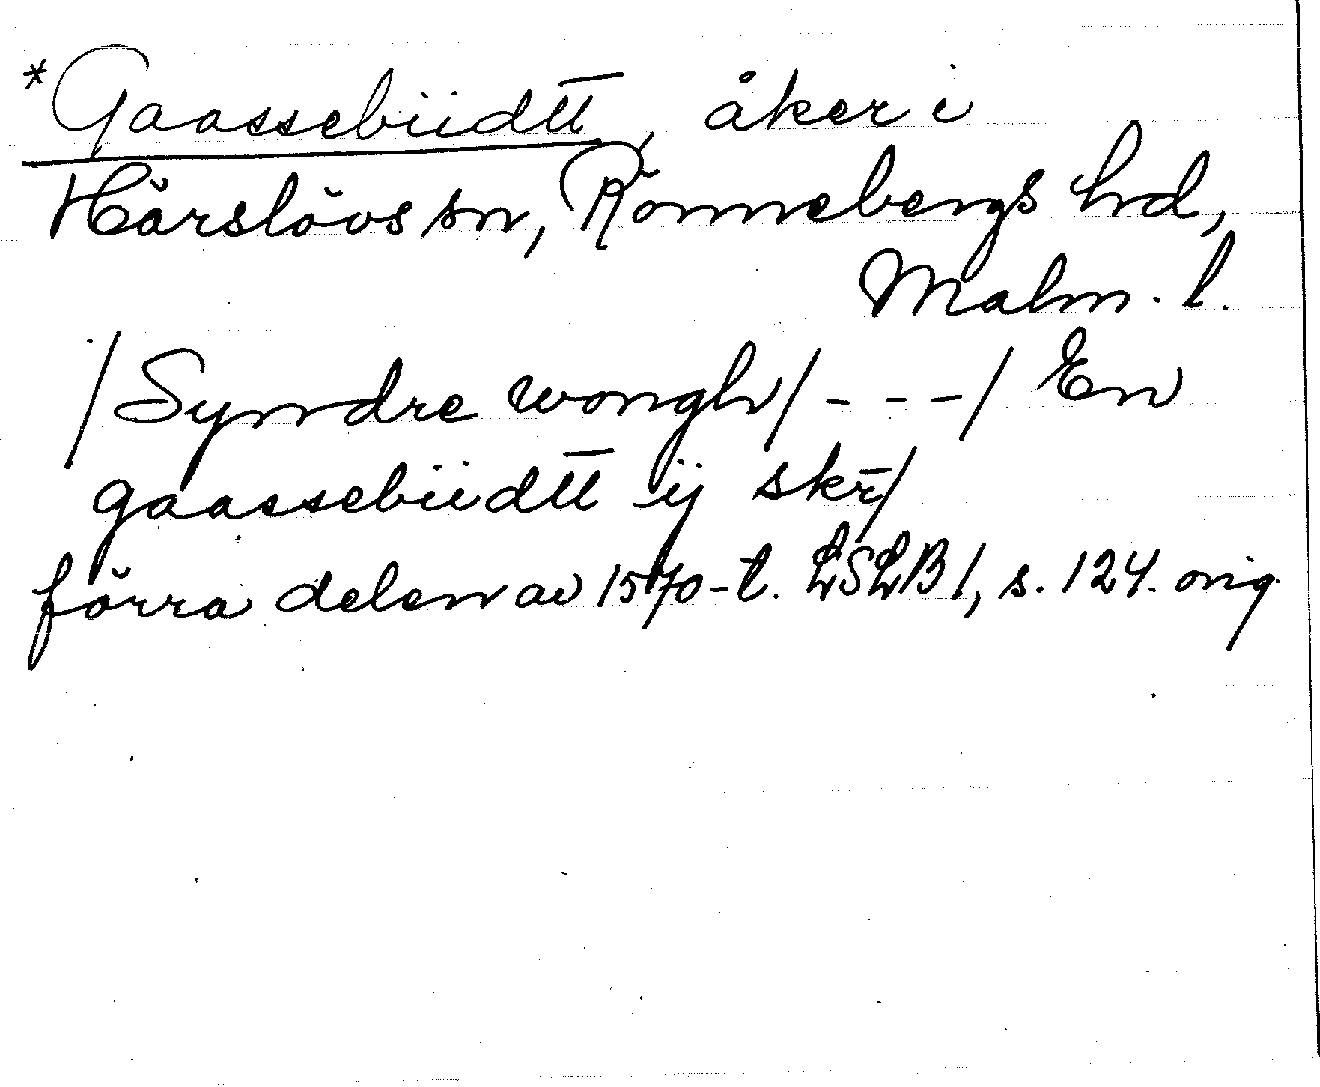 *Gaassebiidtt̅, åker i
Härslövs sn, Rönnebergs hd,
Malm. l.
/Syndre wongh/ - - - / En
gaassebiidtt̅ ij skr̅/
förra delen av 1570-t. LSLB 1, s. 124. orig.